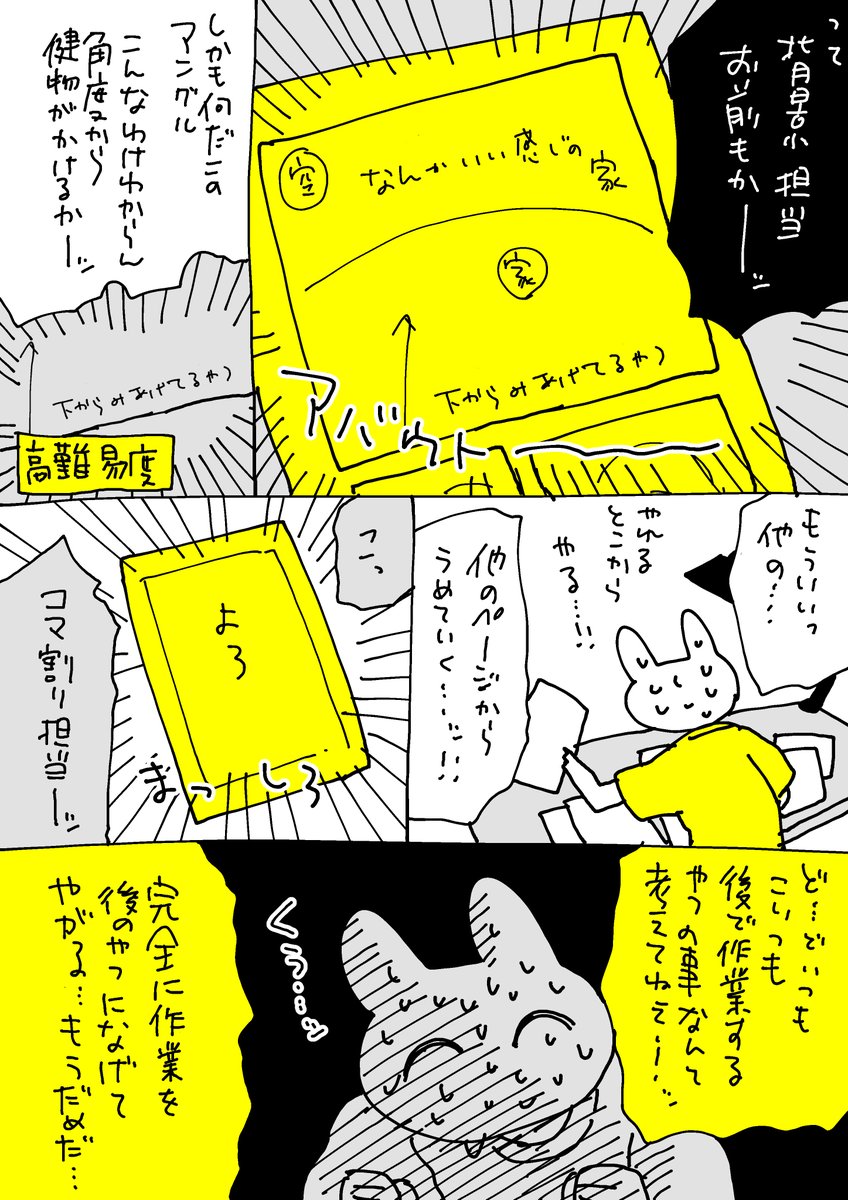 って
背景担当
お前もかーッ
空
なんかいい感じの
家
家
下からみあげてるやつ
アバウトーー
しかも何だこの
アングル
こんなわけわからん
角度から
健物がかけるかーッ
下からみあげてるやつ
高難易度
もういいっ
他の…
やれる
とこから
やる…!!
他のページから
うめていく…!!
こっ
よろ
まっしろ
コマ割り担当ーッ
ど…どいつも
こいつも
後で作業する
やつの事なんて
考えてねぇーッ
くぅ…ッ
完全に作業を
後のやつになげて
やがる…もうだめだ…